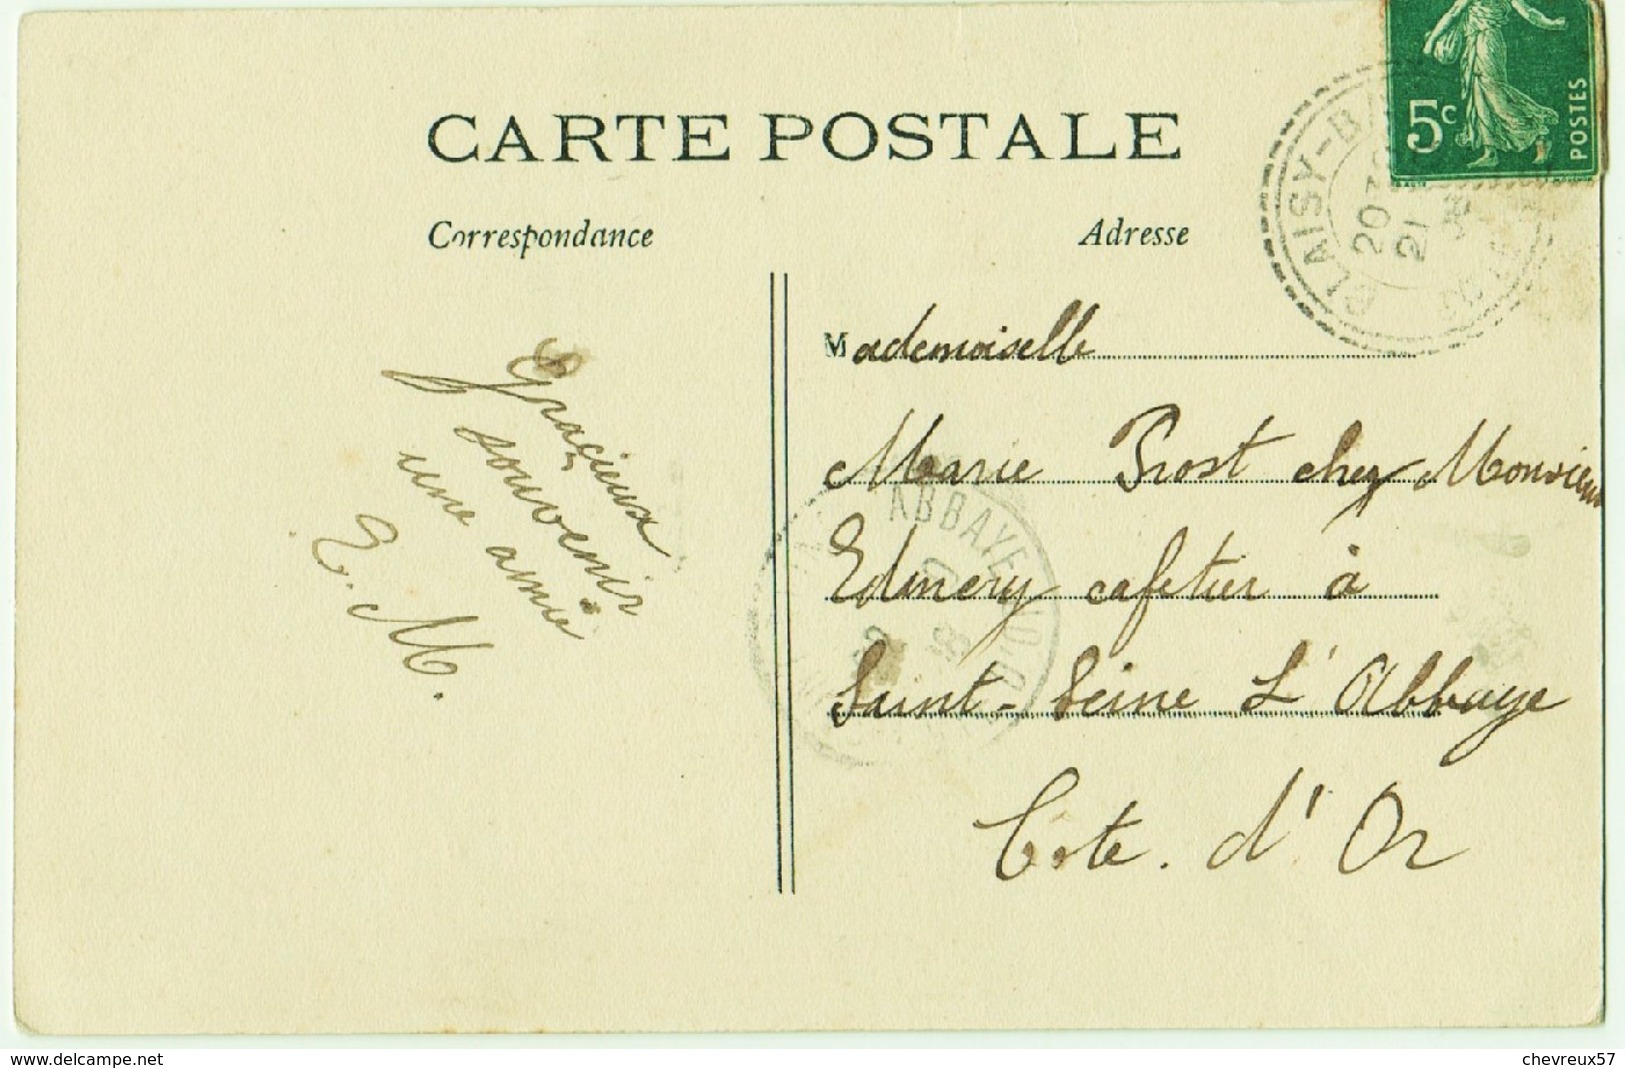 CARTE POSTALE
Correspondance
Adresse
5c
POSTES
BLAISY-BA
21
Gracieux
souvenir
une amie
E. M.
Mademoiselle
Marie Prost chez Monsieur
Edmery cafetier à
Saint-Seine L'Abbaye
Cote. d'Or
ABBAYE
www.delcampe.net
chevreux57